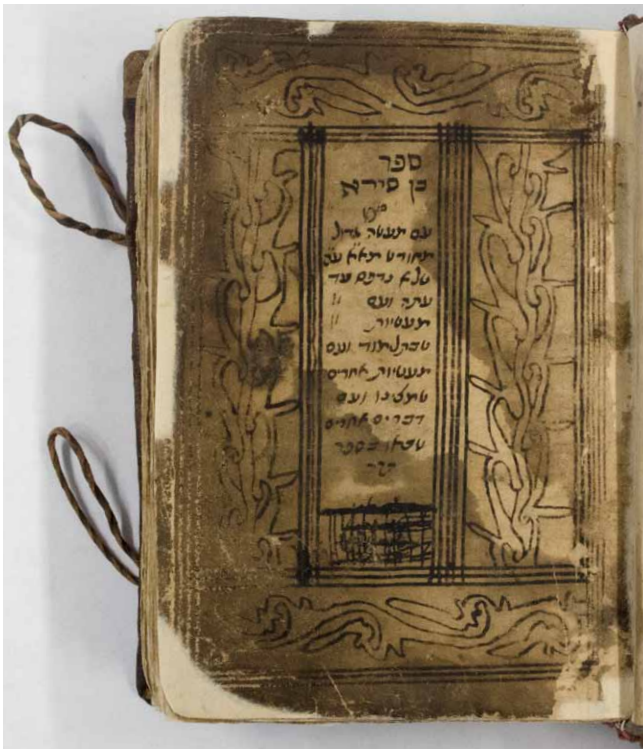 ספר
בן סירא
עם מעשה גדול
מחודש
שלא נדפס עד
עתה ועם
מעשיות
שבתלמוד ועם
מעשיות אחרים
שמצינו ועם
דברים אחרים
שבאו בספר